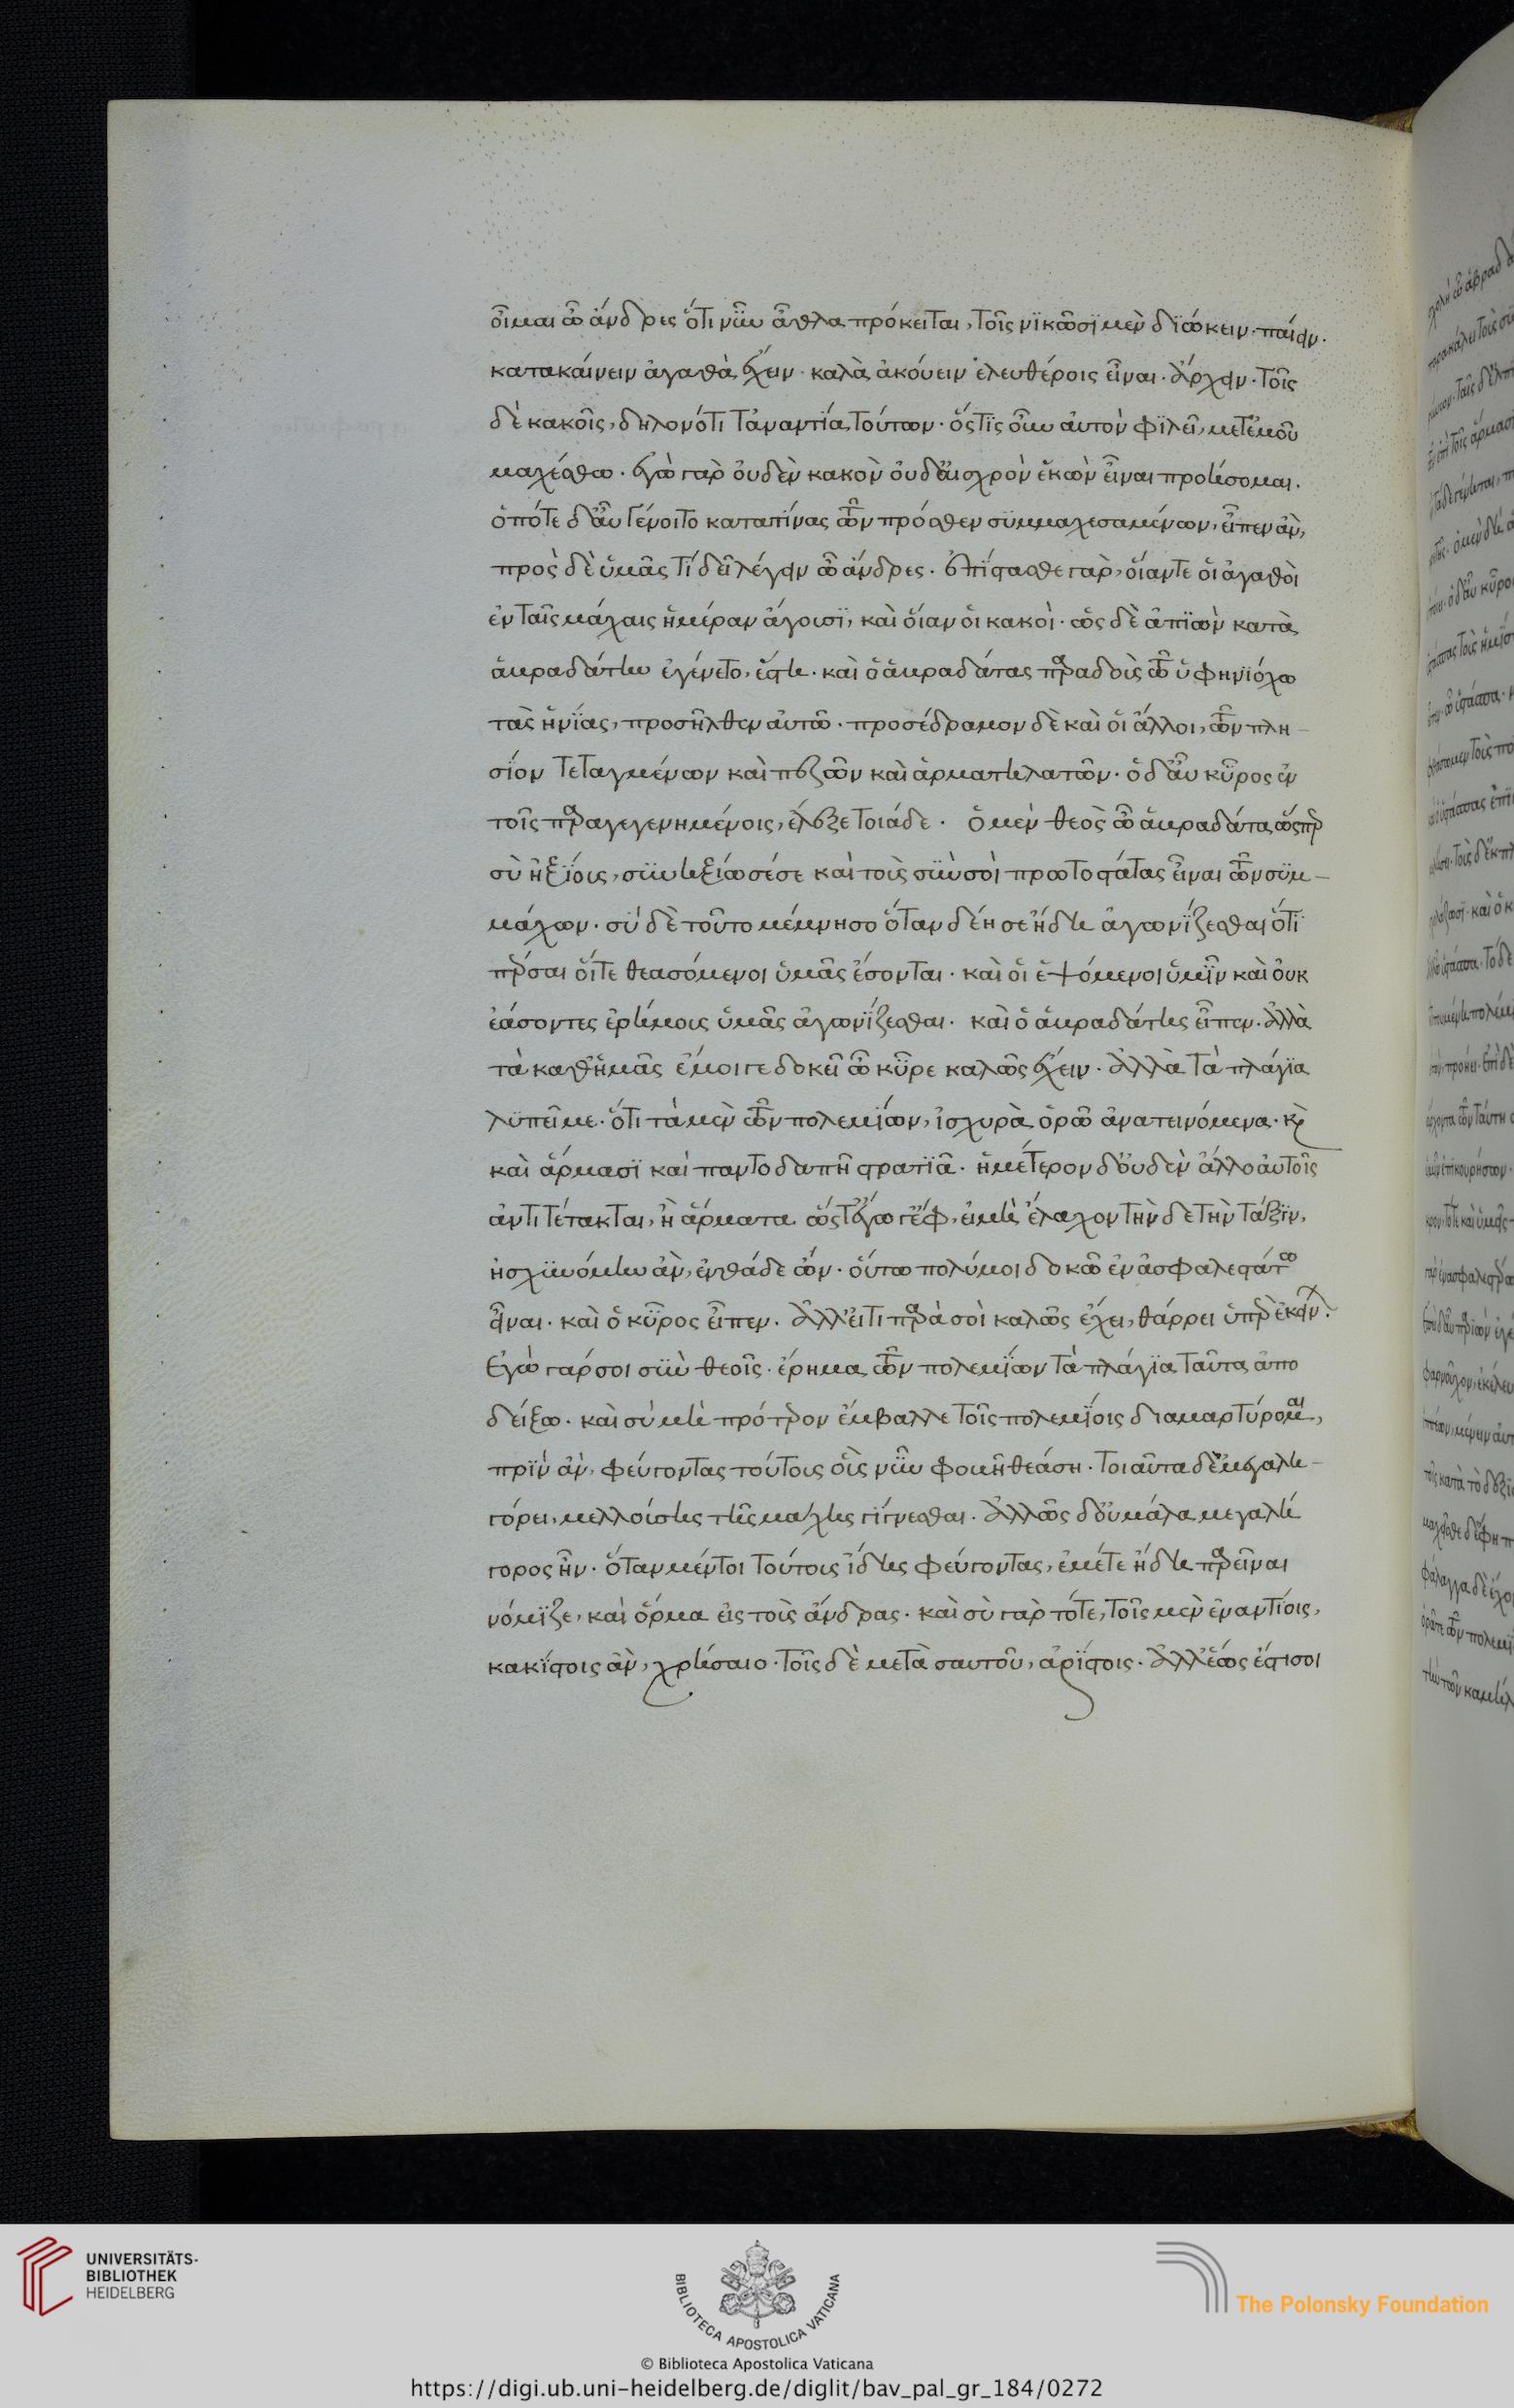 οἶμαι ὦ ἄνδρες ὅτι νῦν ἆθλα πρόκειται, τοῖς νϊκῶσϊ μὲν δϊώκειν· παίειν·
κατακαίνειν ἀγαθὰ ἔχειν· καλὰ ἀκούειν ἐλευθέροις εἶναι· ἄρχειν· τοῖς
δὲ κακοῖς, δηλονότι τἀναντία τούτων· ὅστϊς οὖν αὐτὸν φϊλεῖ, μετ' ἐμοῦ
μαχέσθω· ἐγὼ γὰρ οὐδὲν κακὸν οὐδ' αἰσχρὸν ἑκὼν εἶναι προήσομαι.
ὁπότε δ' αὖ γένοιτο κατατίνας τῶν πρόσθεν συμμαχεσαμένων, εἶπεν ἂν,
πρὸς δὲ ὑμᾶς τί δεῖ λέγειν ὦ ἄνδρες. ἐπίστασθε γὰρ, οἵαν τε οἱ ἀγαθοὶ
ἐν ταῖς μάχαις ἡμέραν ἄγουσϊ, καὶ οἵαν οἱ κακοί· ὡς δὲ ἀπϊὼν κατὰ
ἀμραδάτην ἐγένετο, ἔστη. καὶ ὁ ἀμραδάτας παραδοὺς τῷ ὑφηνϊόχω
τὰς ἡνϊας, προσῆλθεν αὐτῶ· προσέδραμον δὲ καὶ οἱ ἄλλοι, τῶν πλη-
σίον τεταγμένων καὶ πεζῶν καὶ ἁρματηλατῶν· ὁ δ' αὖ κῦρος ἐν
τοῖς παραγεγενημένοις, ἔλεξε τοιάδε. ὁ μὲν θεὸς ὦ ἀμραδάτα, ὥσπερ
σὺ ἠξΐοις, συνηξίωσέ σε καὶ τοὺς σὺν σοὶ πρωτοστάτας εἶναι τῶν συμ-
μάχων· σὺ δὲ τοῦτο μέμνησο ὅταν δέη σε ἤδη ἀγωνΐζεσθαι ὅτϊ
πέρσαι οἵ τε θεασόμενοι ὑμᾶς ἔσονται· καὶ οἱ ἑψόμενοι ὑμῖν καὶ οὐκ
ἐάσοντες ἐρήμους ὑμᾶς ἀγωνΐζεσθαι. καὶ ὁ ἀμραδάτης εἶπεν. ἀλλὰ
τὰ καθ' ἡμᾶς ἔμοιγε δοκεῖ ὦ κῦρε καλῶς ἔχειν. ἀλλὰ τὰ πλάγϊα
λϋπεῖ με. ὅτι τὰ μὲν τῶν πολεμΐων, ἰσχυρὰ ὁρῶ ἀνατεινόμενα· καὶ
καὶ ἅρμασϊ καὶ παντοδαπῆ στρατϊᾶ· ἡμέτερον δ' οὐδὲν ἄλλο αὐτοῖς
ἀντιτέτακται, ἢ ἅρματα ὥστ' ἔγωγ' ἔφ, εἰ μὴ ἔλαχον τήνδε τὴν τάξϊν,
ἠσχϋνόμην ἂν, ἐνθάδε ὤν· οὕτω πολύ μοι δοκῶ ἐν ἀσφαλεστάτω
εἶναι. καὶ ὁ κῦρος εἶπεν. ἀλλ' εἴ τι παρὰ σοὶ καλῶς ἔχει, θάρρει ὑπὲρ ἐκείν.
Ἐγὼ γάρ σοι σὺν θεοῖς· ἔρημα τῶν πολεμΐων τὰ πλάγϊα ταῦτα ἀπο
δείξω. καὶ σὺ μὴ πρότερον ἔμβαλλε τοῖς πολεμΐοις διαμαρτύρομαι,
πρϊν ἂν, φεύγοντας τούτους οὓς νῦν φοιῆ θεάση. τοιαῦτα δ' ἐμεγαλη-
γόρει, μελλούσης τῆς μάχης γΐγνεσθαι. ἄλλως δ' οὐ μάλα μεγαλή
γορος ἦν· ὅταν μέντοι τούτους ἴδης φεύγοντας, ἐμέ τε ἤδη παρεῖναι
νόμϊζε, καὶ ὅρμα εἰς τοὺς ἄνδρας. καὶ σὺ γὰρ τότε, τοῖς μὲν ἐναντίοις,
κακΐστοις ἂν, χρήσαιο. τοῖς δὲ μετὰ σαυτοῦ, ἀρΐστοις. ἀλλ' ἕως ἔστι σοι
UNIVERSITÄTS-
BIBLIOTHEK
HEIDELBERG
BIBLIOTECA APOSTOLICA VATICANA
The Polonsky Foundation
© Biblioteca Apostolica Vaticana
https://digi.ub.uni-heidelberg.de/diglit/bav_pal_gr_184/0272